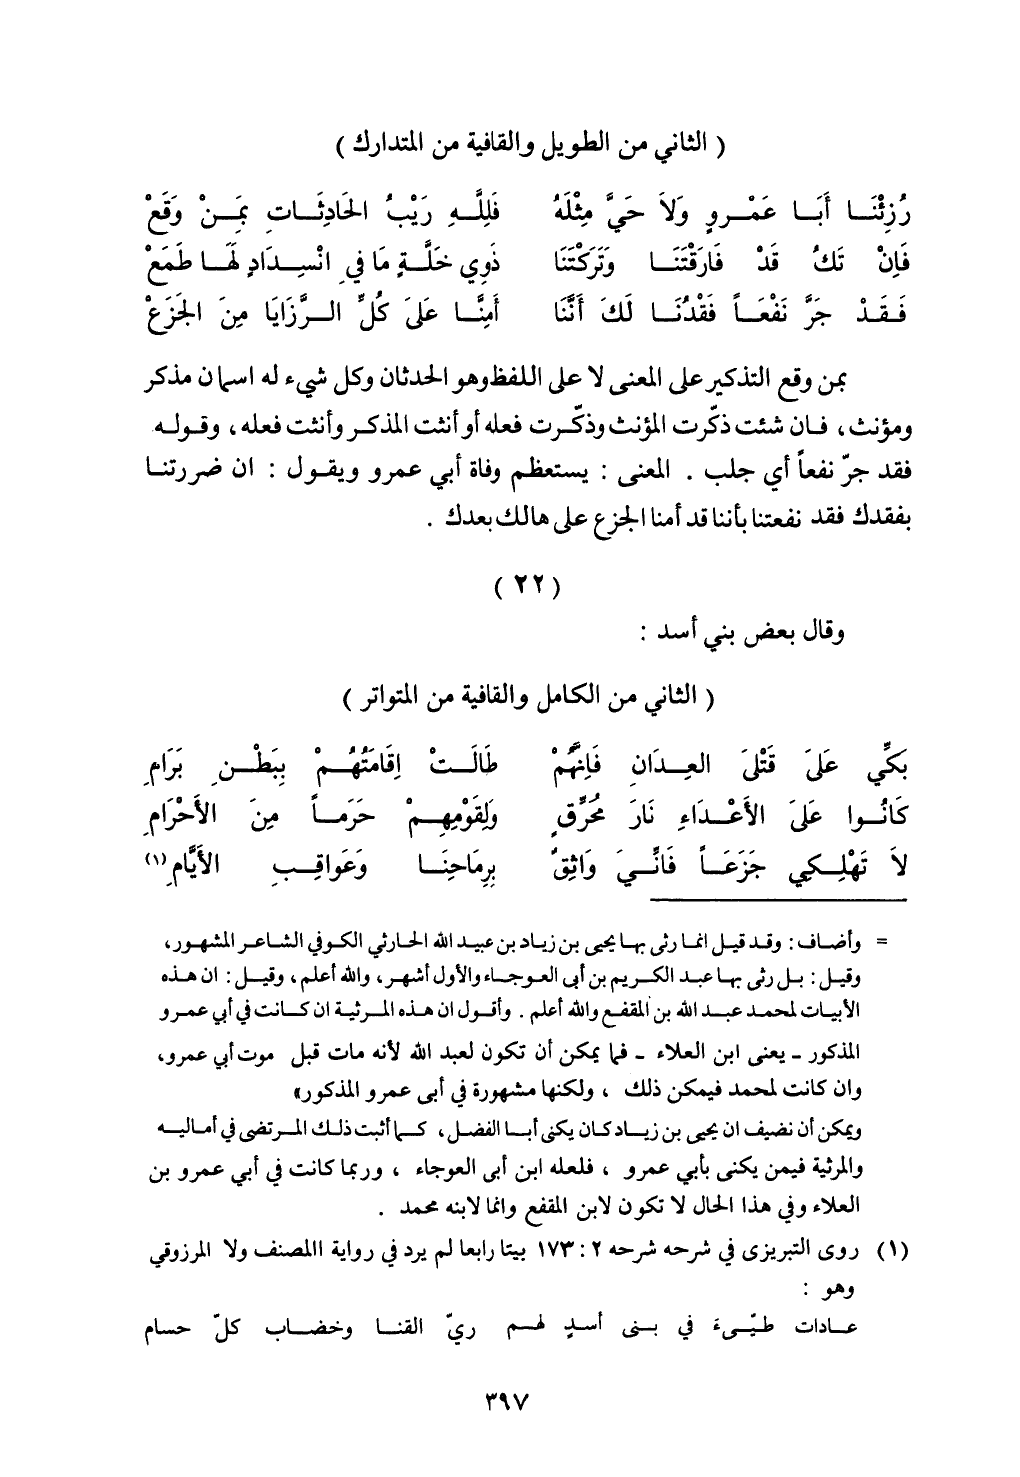 ( الثاني من الطويل والقافية من المتدارك )
رُزِئْنَـا أَبَـا عَمْـرٍو وَلاَ حَيَّ مِثْلَهُ فَلِلَّـهِ رَيْبُ الحَادِثَـاتِ بَمَـنْ وَقَعْ
فَإِنْ تَكُ قَدْ فَارَقْتَنَـا وَتَرَكْتَنَا ذَوِي خَلَّـةٍ مَا فيِ انْسِـدَادٍ لَهَـا طَمَعْ
فَـقَـدْ جَرَّ نَفْعَـاً فَقْدُنَـا لَكَ أَنَّنَا أَمِنَّـا عَلىَ كُلِّ الـرَّزَايَا مِنَ الجَزَعْ
بمن وقع التذكير على المعنى لا على اللفظ وهو الحدثان وكل شيء له اسمان مذكر
ومؤنث، فـان شئت ذكّرت المؤنث وذكّـرت فعله أو أنثت المذكـر وأنثت فعله، وقـولـه
فقد جرّ نفعاً أي جلب . المعنى : يستعظم وفاة أبي عمرو ويقـول : ان ضررتنـا
بفقدك فقد نفعتنا بأننا قد أمنا الجزع على هالك بعدك .
( ٢٢ )
وقال بعض بني أسد :
( الثاني من الكامل والقافية من المتواتر )
بَكِّي عَلىَ قَتْلىَ العِـدَانِ فَإِنَّهُمْ طَالَـتْ إقَامَتُهُـمْ بِبَطْـنِ بَرَامِ
كَانُـوا عَلىَ الأَعْـدَاءِ نَارَ مُحَرِّقٍ وَلِقَوْمِهِـمْ حَرَمـاً مِنَ الأَحْرَامِ
لاَ تَهْلِـكِي جَزَعَـاً فَانِّـيَ وَاثِقٌ بِرِمَاحِنَـا وَعَوَاقِـبِ الأَيَّامِ(١)
= وأضـاف : وقـد قيـل انمـا رثى بهـا يحيى بـن زيـاد بن عبيد الله الحارثي الكـوفي الشاعـر المشهور،
وقيل : بـل رثى بهـا عبـد الكريم بن أبى العـوجـاء والأول أشهر، والله أعلم، وقيـل : ان هـذه
الأبيـات لمحمد عبـد الله بن المقفـع والله أعلم . وأقـول ان هـذه المـرثيـة ان كـانت في أبي عمـرو
المذكور ـ يعنى ابن العلاء ـ فما يمكن أن تكون لعبد الله لأنه مات قبل موت أبي عمرو،
وان كانت لمحمد فيمكن ذلك ، ولكنها مشهورة في أبى عمرو المذكور»
ويمكن أن نضيف ان يحيى بن زيـاد كان يكنى أبـا الفضل، كـما أثبت ذلـك المـرتضى في أمـاليـه
والمرثية فيمن يكنى بأبي عمرو ، فلعله ابن أبى العوجاء ، وربما كانت في أبي عمرو بن
العلاء وفي هذا الحال لا تكون لابن المقفع وانما لابنه محمد .
(١) روى التبريزى في شرحه شرحه ٢ : ١٧٣ بيتا رابعا لم يرد في رواية االمصنف ولا المرزوقي
وهو :
عـادات طيّـىءَ في بـنى أسـدٍ لهـم ريّ القنـا وخضـاب كلّ حسام
٣٩٧